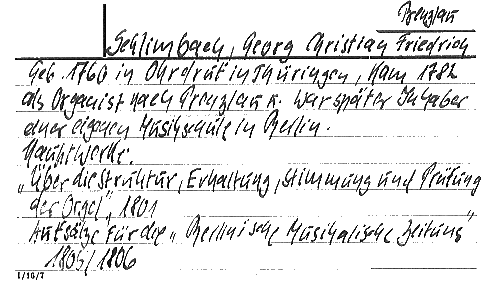 Prenzlau
Schlimbach, Georg Christian Friedrich
Geb. 1760 in Ohrdruf in Thüringen, kam 1782
als Organist nach Prenzlau u. war später Inhaber
einer eigenen Musikschule in Berlin.
Hauptwerke:
„Über die Struktur, Erhaltung, Stimmung und Prüfung
der Orgel", 1801
Aufsätze für die „Berlinische Musikalische Zeitung"
1805/1806
1/16/7